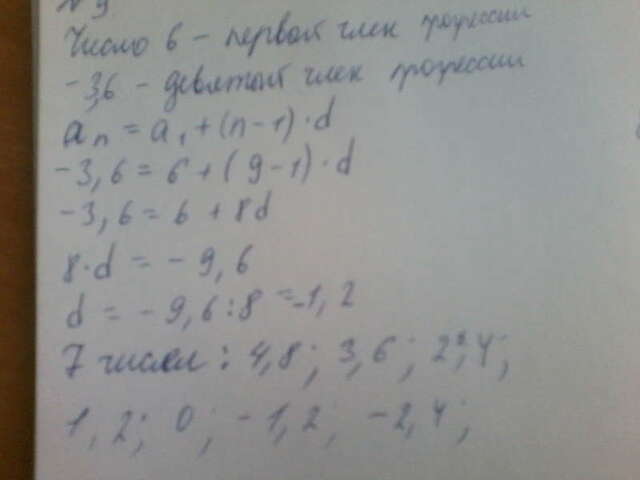 № 9
Число 6 – первый член прогрессии
-3,6 – девятый член прогрессии
aₙ = a₁ + (n-1)·d
-3,6 = 6 + (9-1)·d
-3,6 = 6 + 8d
8·d = -9,6
d = -9,6:8 = -1,2
7 чисел: 4,8; 3,6; 2,4;
1,2; 0; -1,2; -2,4;